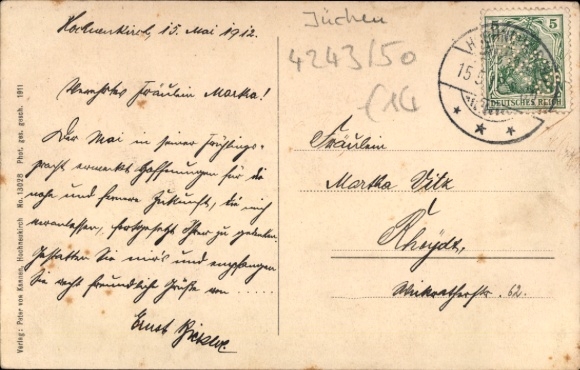 Hochneukirch, 15. Mai 1912.
Verehrtes Fräulein Martha!
Der Mai in seiner Frühlings-
pracht erweckt Hoffnungen für die
nahe und fernere Zukunft, die mich
veranlassen, fortgesetzt Ihrer zu gedenken.
Gestatten Sie mir's und empfangen
Sie recht freundliche Grüße von ....
Ernst
Jüchen
4243/50
(14
5
DEUTSCHES REICH
15.5
Fräulein
Martha Vitz
Rheydt,
Wickratherstr. 62.
Verlag: Peter von Kannen, Hochneukirch No. 13028 Phot. ges. gesch. 1911